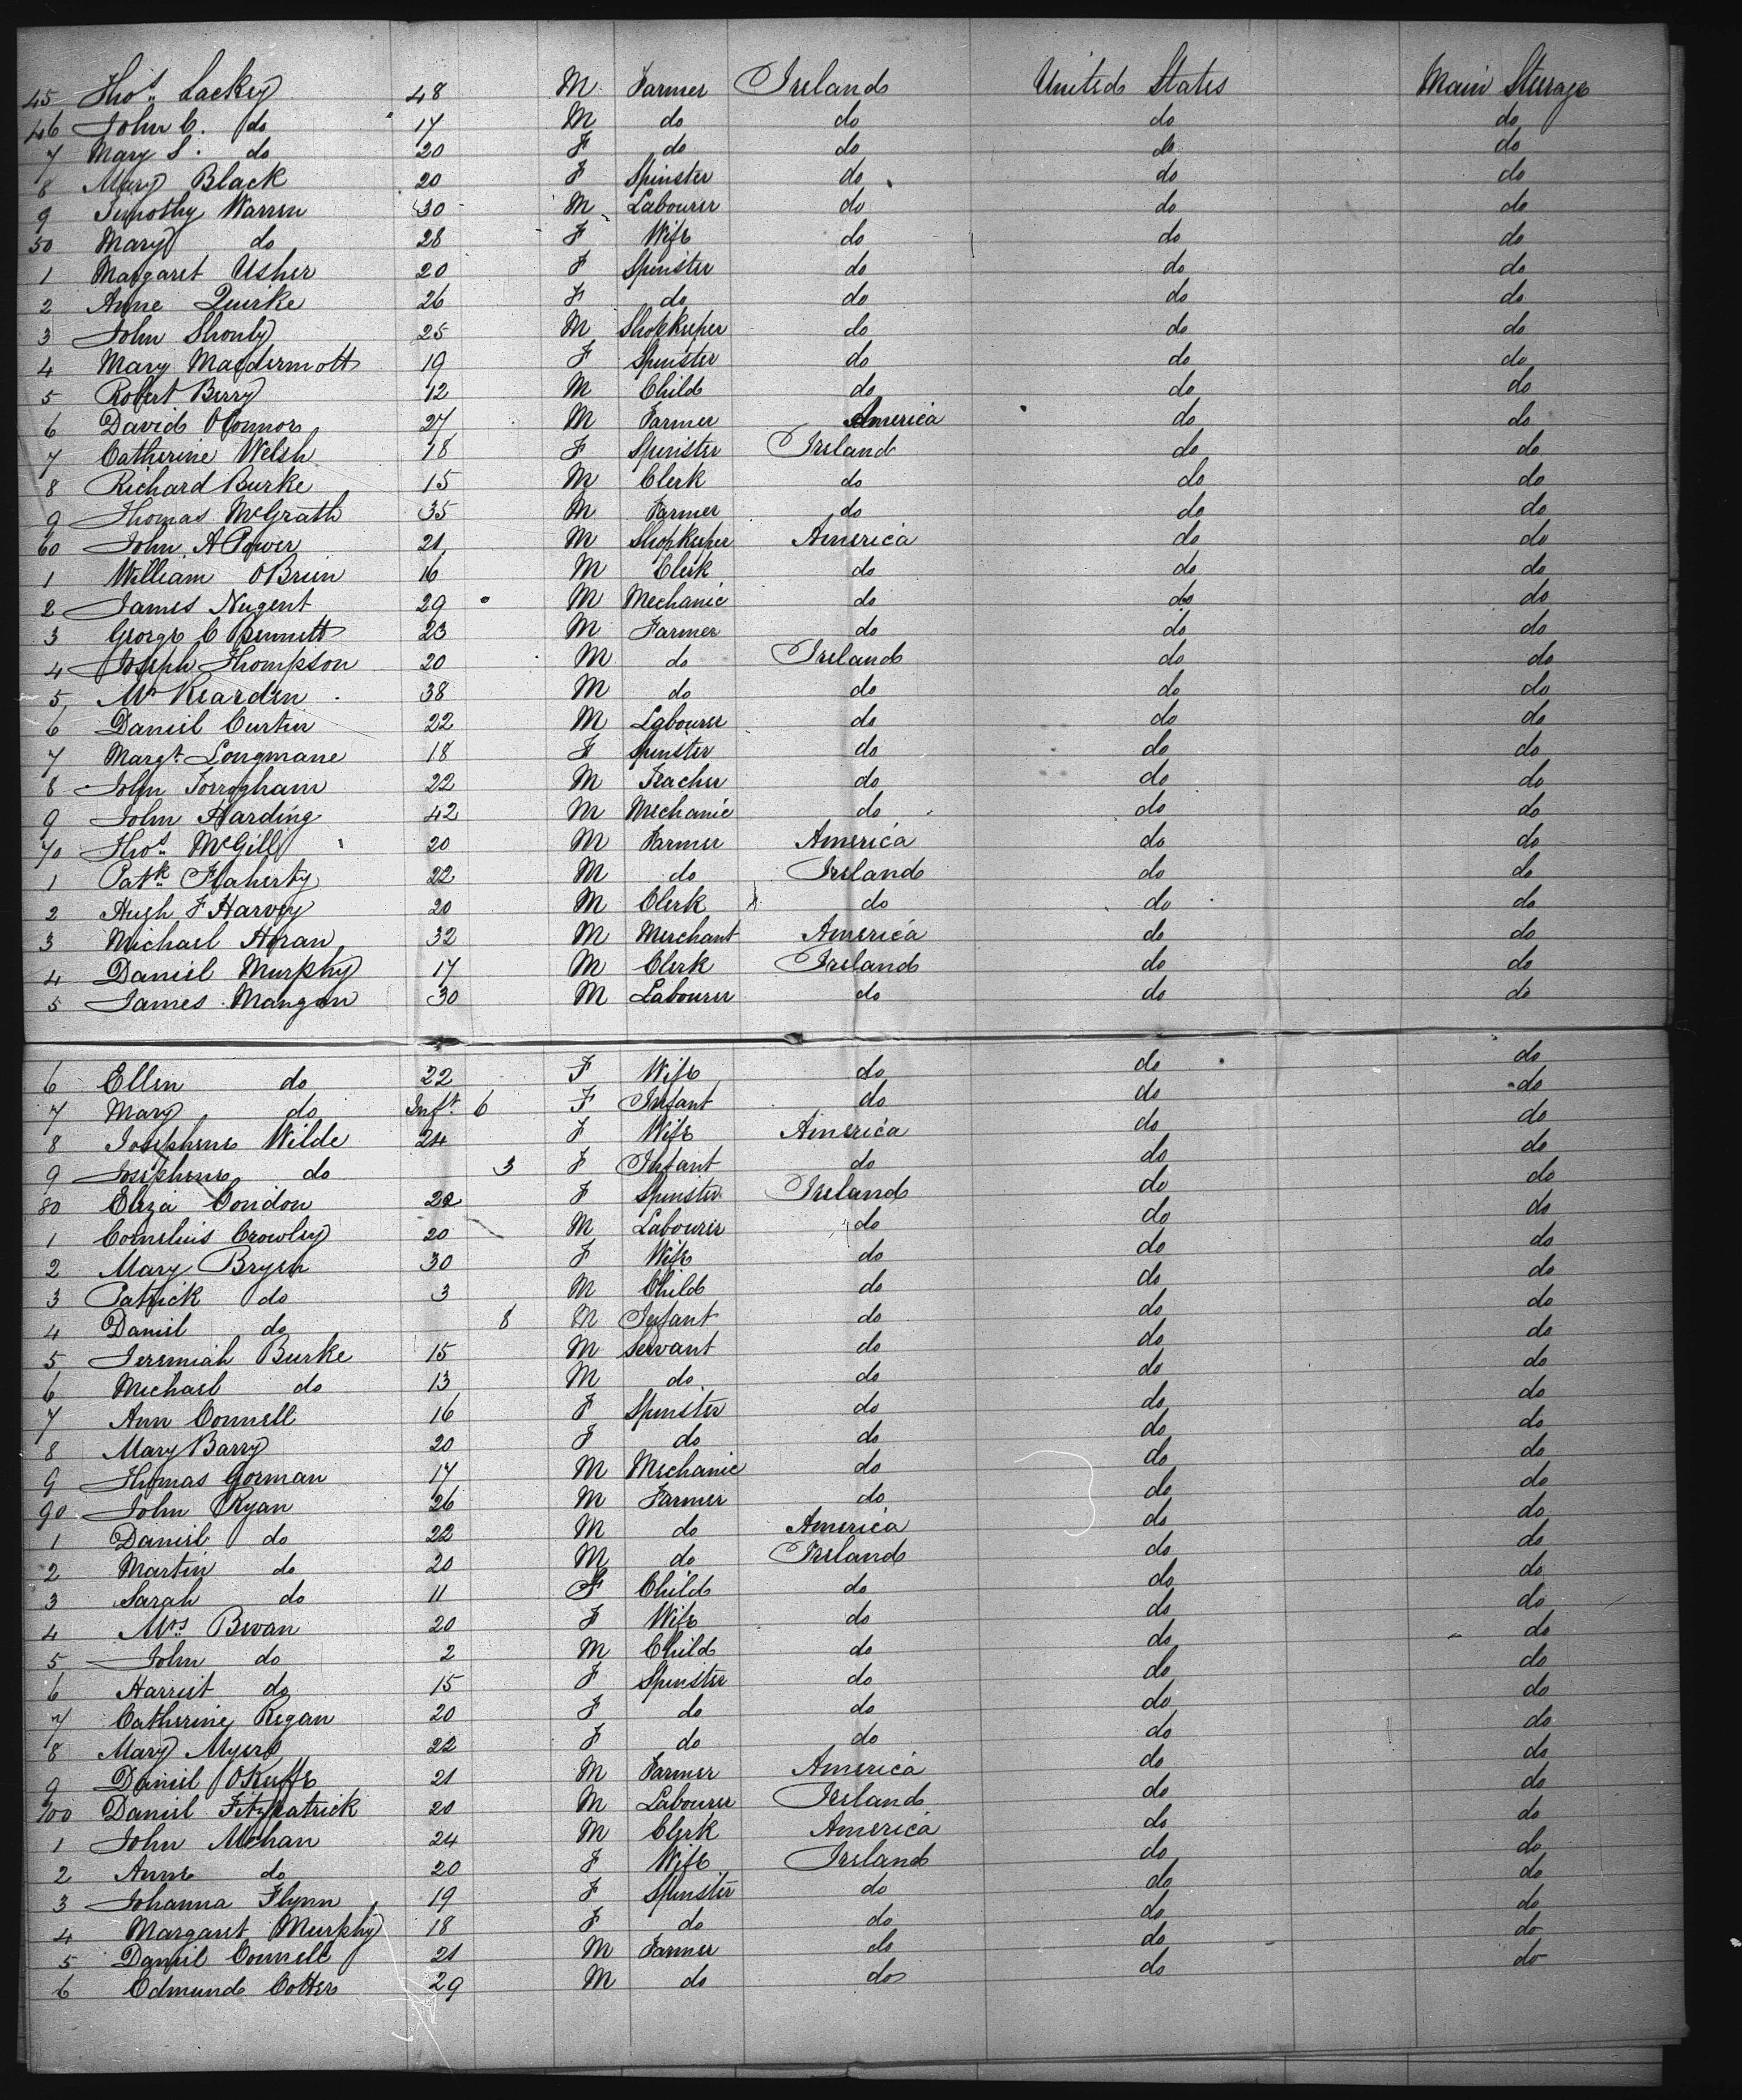 45 Thos. Lackey 48 M Farmer Ireland United States Main Steerage
46 John C. do 17 M do do do do
7 Mary S. do 20 F do do do do
8 Mary Black 20 F Spinster do do do
9 Timothy Warren 30 M Labourer do do do
50 Mary do 28 F Wife do do do
1 Margaret Usher 20 F Spinster do do do
2 Anne Quirke 26 F do do do do
3 John Shonly 25 M Shopkeeper do do do
4 Mary Macdermott 19 F Spinster do do do
5 Robert Berry 12 M Child do do do
6 David OConnor 27 M Farmer America do do
7 Catherine Welsh 18 F Spinster Ireland do do
8 Richard Burke 15 M Clerk do do do
9 Thomas McGrath 35 M Farmer do do do
60 John A Power 21 M Shopkeeper America do do
1 William OBrien 16 M Clerk do do do
2 James Nugent 29 M Mechanic do do do
3 George C Bennett 23 M Farmer do do do
4 Joseph Thompson 20 M do Ireland do do
5 Mr Rearden 38 M do do do do
6 Daniel Curtin 22 M Labourer do do do
7 Margt. Longmane 18 F Spinster do do do
8 John Torrogham 22 M Teacher do do do
9 John Harding 42 M Mechanic do do do
70 Thos. McGill 20 M Farmer America do do
1 Patk. Flaherty 22 M do Ireland do do
2 Hugh F Harvey 20 M Clerk do do do
3 Michael Horan 32 M Merchant America do do
4 Daniel Murphy 17 M Clerk Ireland do do
5 James Mangan 30 M Labourer do do do
6 Ellen do 22 F Wife do do do
7 Mary do Inft. 6 F Infant do do do
8 Josephene Wilde 24 F Wife America do do
9 Josephene do 3 F Infant do do do
80 Eliza Condon 22 F Spinster Ireland do do
1 Cornelius Crowley 20 M Labourer do do do
2 Mary Bryen 30 F Wife do do do
3 Patrick do 3 M Child do do do
4 Daniel do 8 M Infant do do do
5 Jeremiah Burke 15 M Servant do do do
6 Michael do 13 M do do do do
7 Ann Connell 16 F Spinster do do do
8 Mary Barry 20 F do do do do
9 Thomas Gorman 17 M Mechanic do do do
90 John Ryan 26 M Farmer do do do
1 Daniel do 22 M do America do do
2 Martin do 20 M do Ireland do do
3 Sarah do 11 F Child do do do
4 Mrs Bevan 20 F Wife do do do
5 John do 2 M Child do do do
6 Harriet do 15 F Spinster do do do
7 Catherine Regan 20 F do do do do
8 Mary Myers 22 F do do do do
9 Daniel OKeeffe 21 M Farmer America do do
100 Daniel Fitzpatrick 20 M Labourer Ireland do do
1 John Mehan 24 M Clerk America do do
2 Anne do 20 F Wife Ireland do do
3 Johanna Flynn 19 F Spinster do do do
4 Margaret Murphy 18 F do do do do
5 Daniel Connell 21 M Farmer do do do
6 Edmund Cotter 29 M do do do do